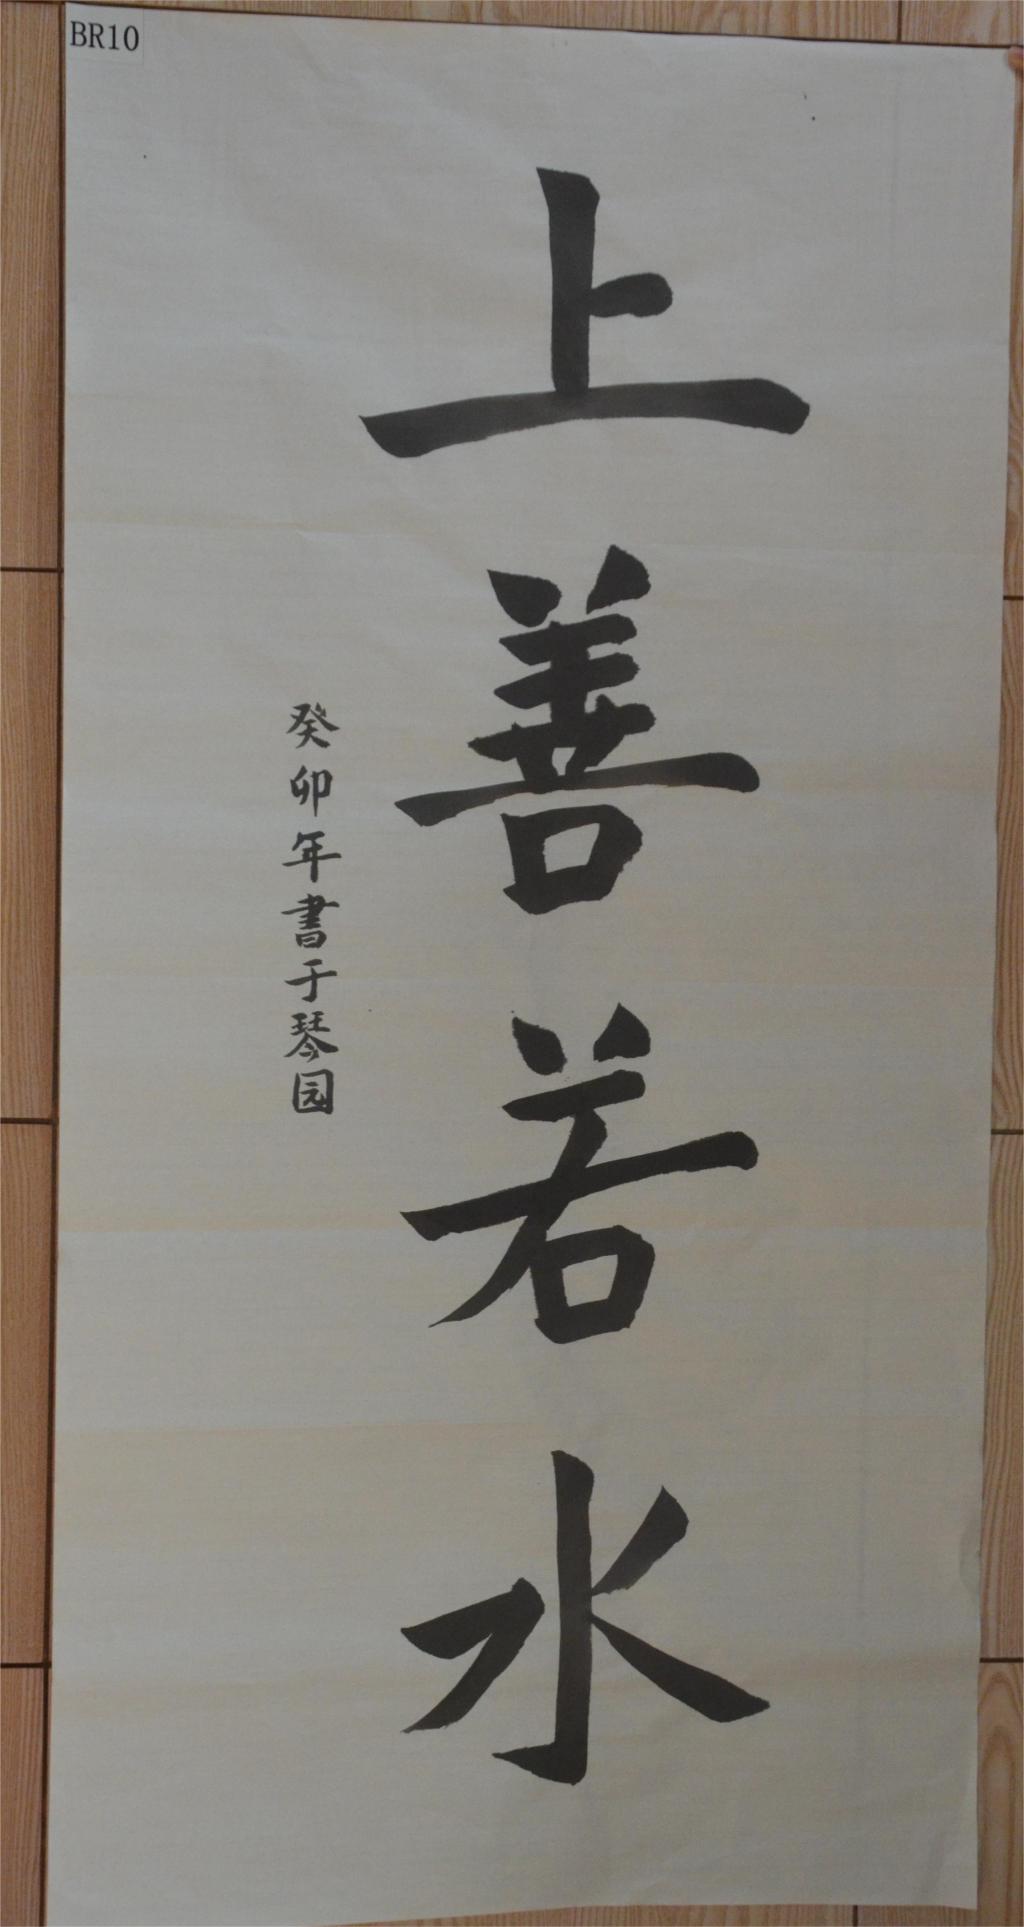 BR10
上善若水
癸卯年書于琴园